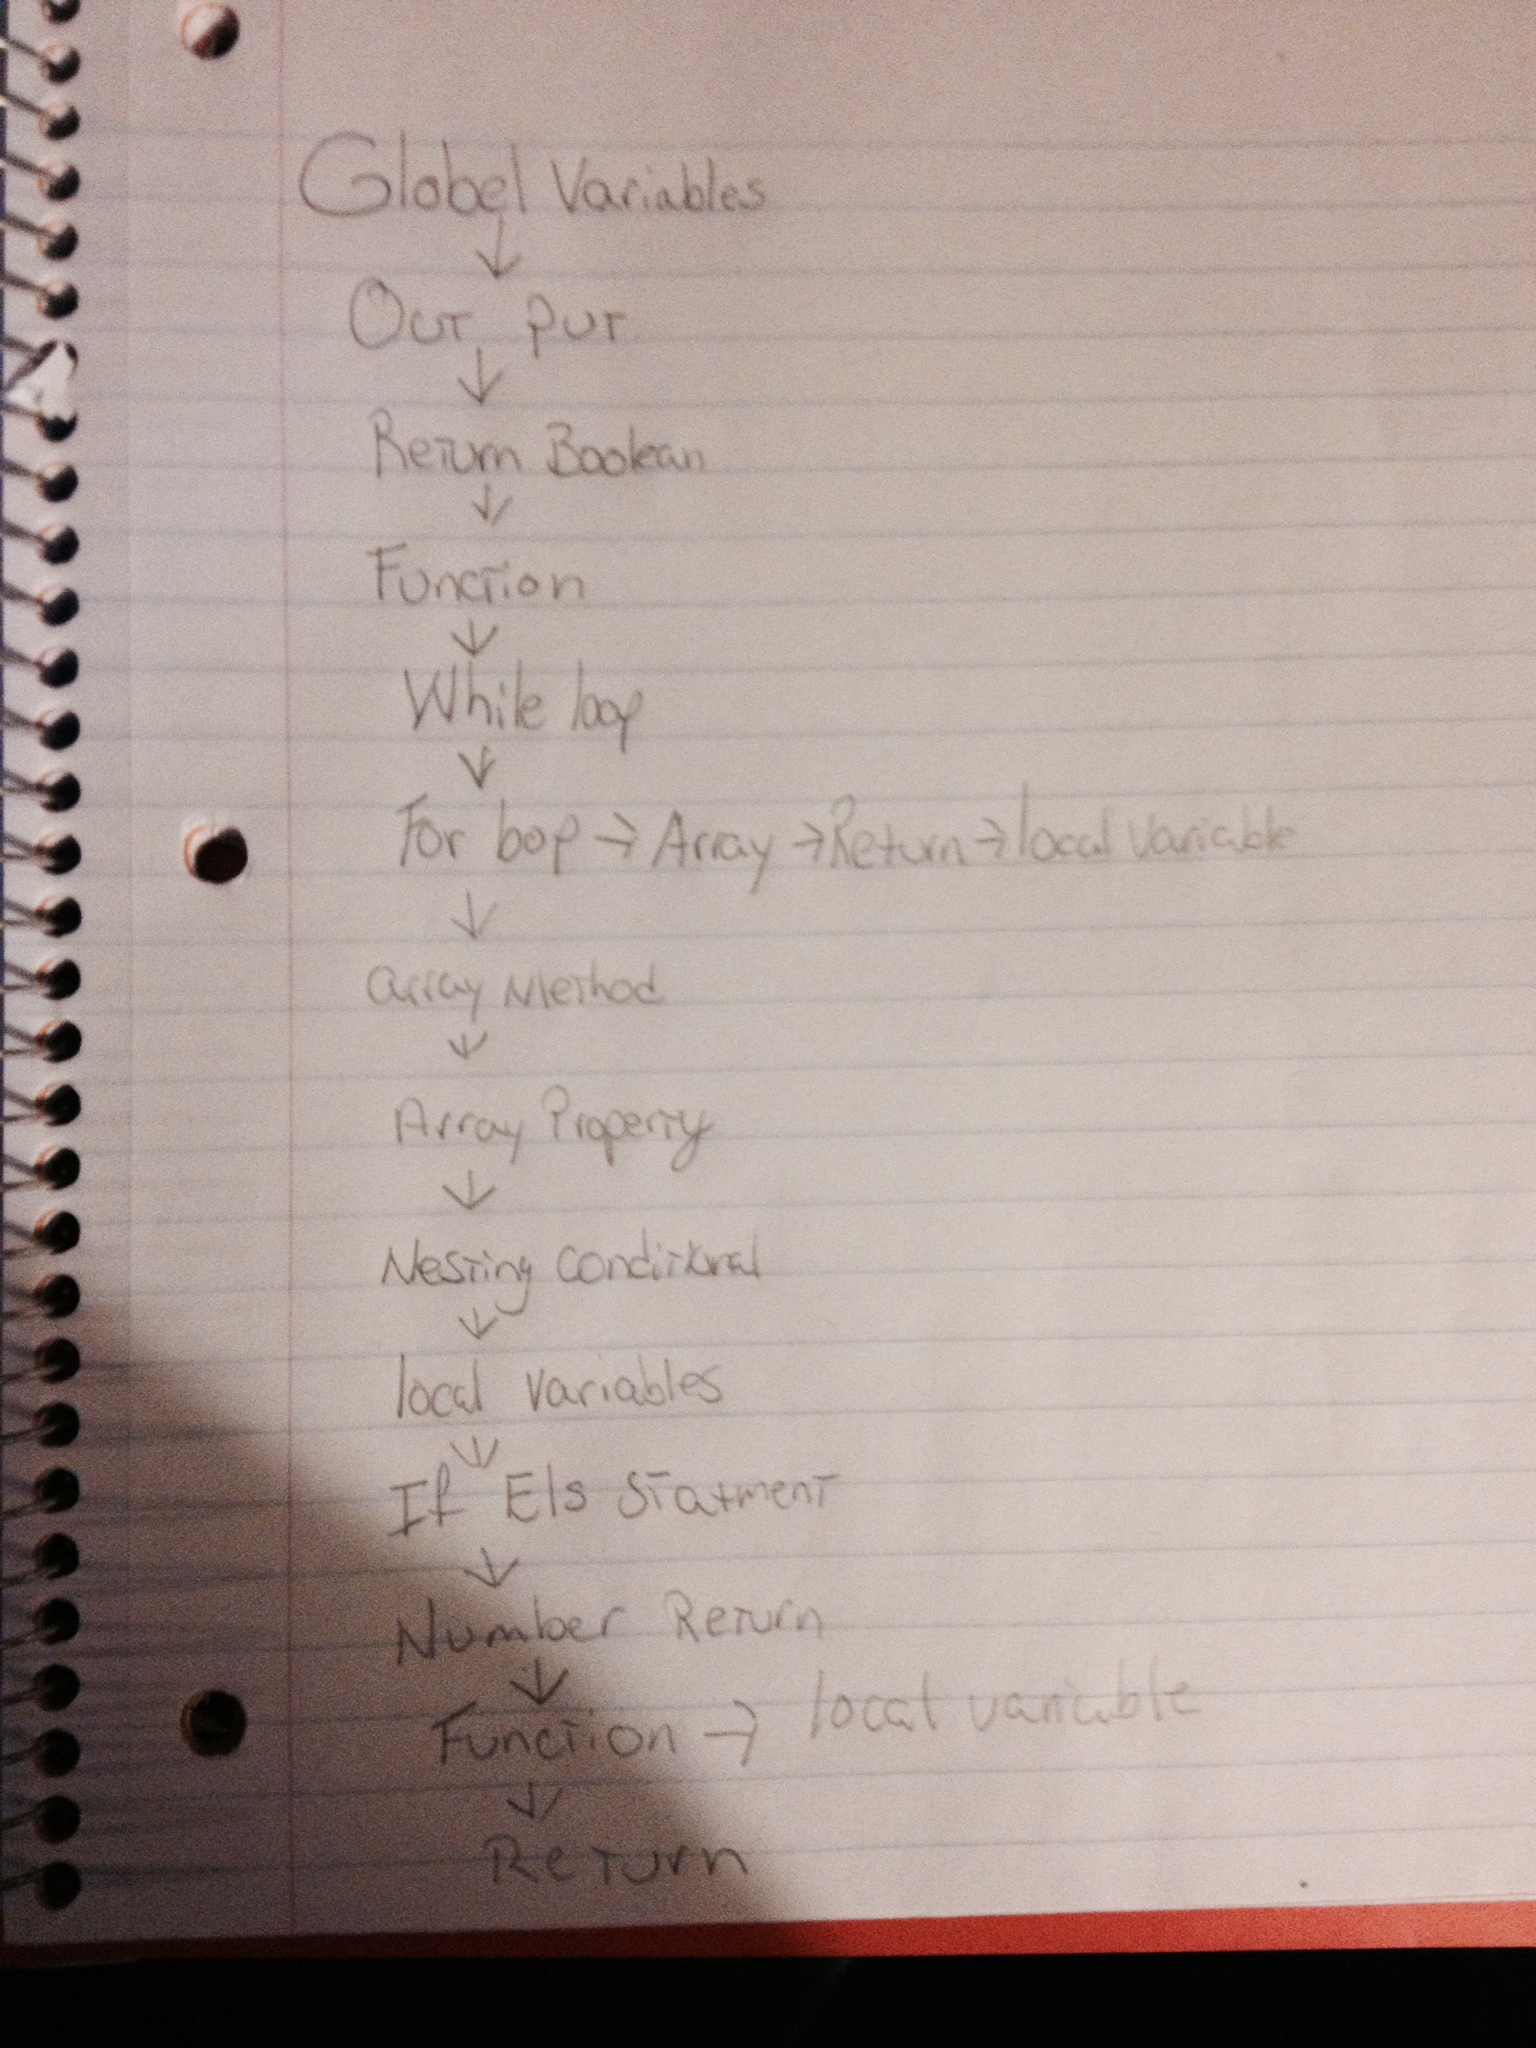 Globel Variables
↓
Out put
↓
Return Boolean
↓
Function
↓
While loop
↓
For loop → Array → Return → local Variable
↓
array Method
↓
Array Property
↓
Nesting Conditional
↓
local Variables
↓
If Els Statment
↓
Number Return
↓
Function → local variable
↓
Return